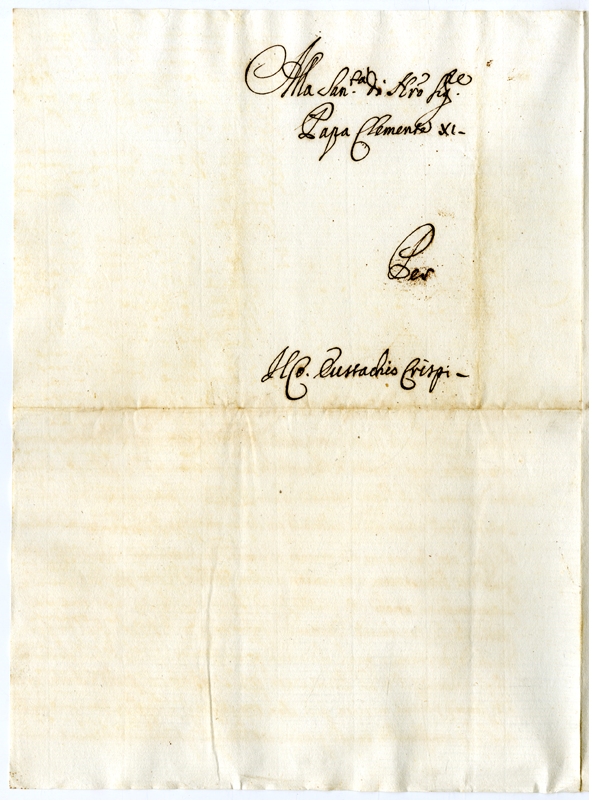 Alla San.tà di Nrō Sig.re
Papa Clemente XI-
Per
Eustachio Crispi-